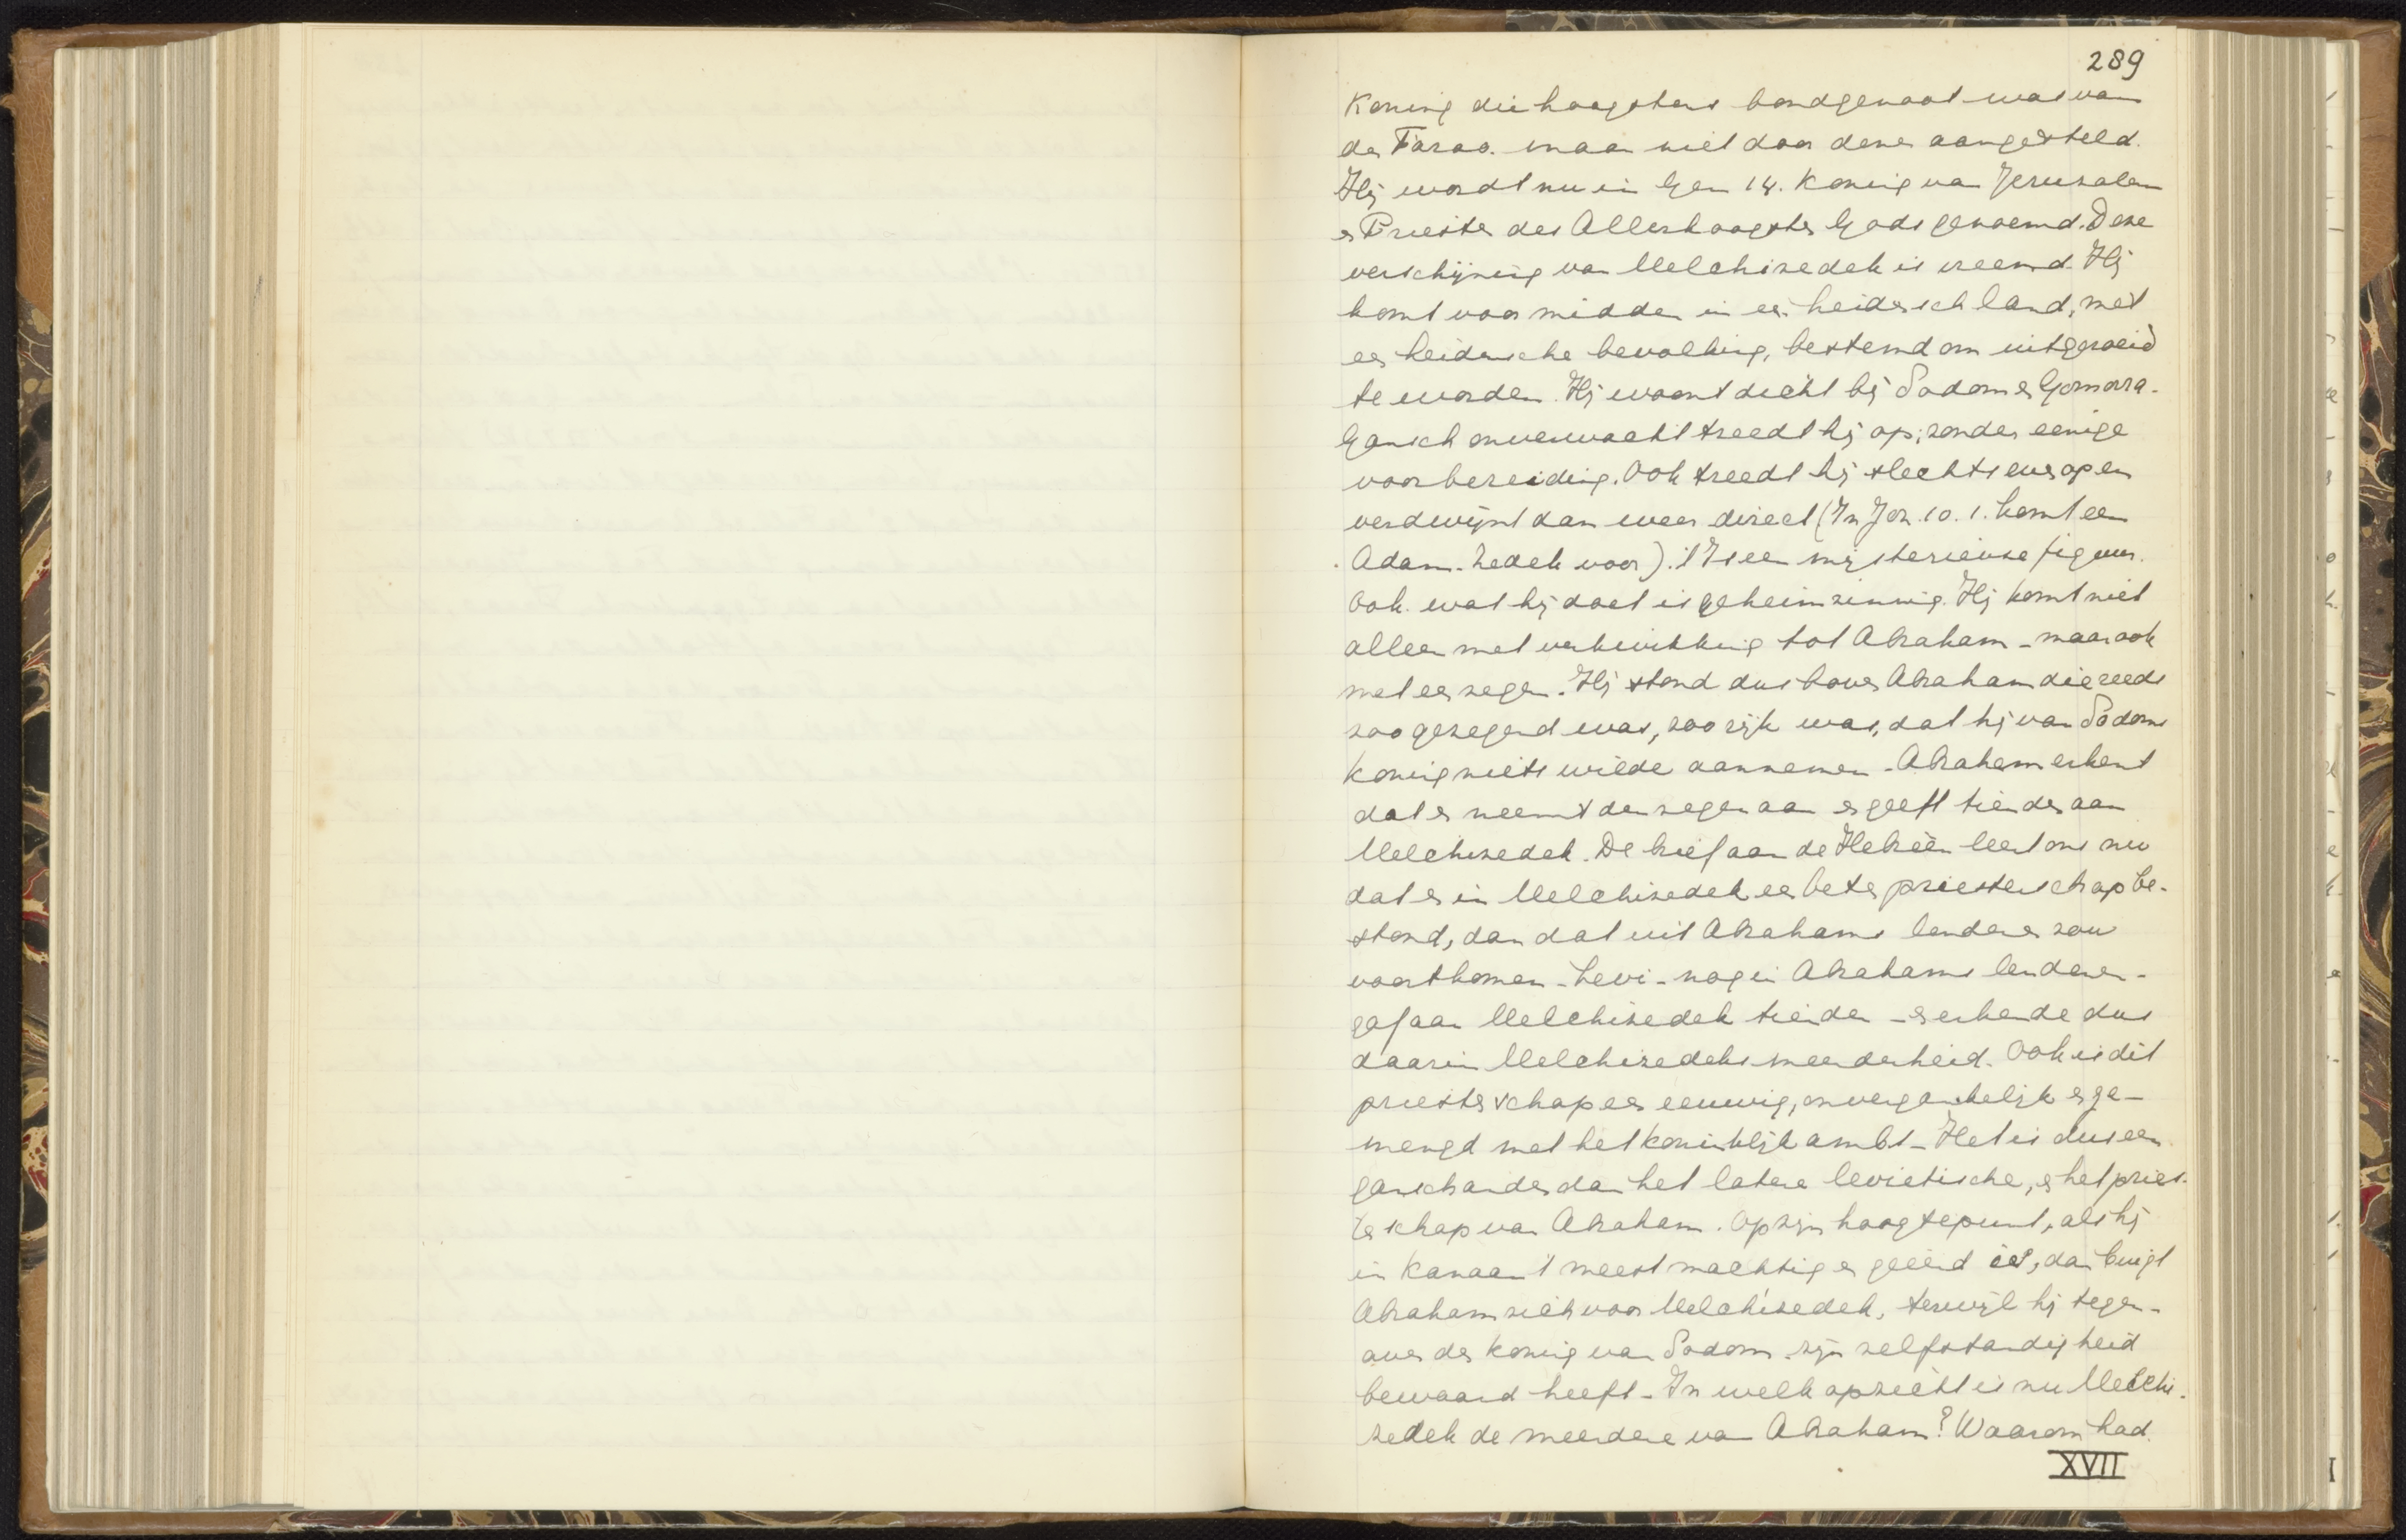 289
Koning die hoogstens bondgenoot was van
den Farao. maar niet door dezen aangesteld.
Hij wordt nu in Gen 14. Koning van Jeruzalem
en Priester des Allerhoogsten Gods genoemd. Deze
verschijning van Melchizedek is vreemd. Hij
komt voor midden in een heidensch land, met
een heidensche bevolking, bestemd om uitgeroeid
te worden. Hij woont dicht bij Sodom en Gomorra.
Gansch onverwacht treedt hij op, zonder eenige
voorbereiding. Ook treedt hij slechts eens op en
verdwijnt dan weer direct (In Joz. 10.1. komt een
Adam-Zedek voor). 't Is een mysterieuse figuur.
Ook wat hij doet is geheimzinnig. Hij komt niet
alleen met verkwikking tot Abraham - maar ook
met een zegen. Hij stond dus boven Abraham die reeds
zoo gezegend was, zoo rijk was, dat hij van Sodoms
koning niets wilde aannemen - Abraham erkent
dat en neemt den zegen aan en geeft tienden aan
Melchizedek. De brief aan de Hebreën leert ons nu
dat er in Melchizedek een beter priesterschap be-
stond, dan dat uit Abrahams lendenen zou
voortkomen - Levi - nog in Abrahams lendenen -
gaf aan Melchizedek tienden - en erkende dus
daarin Melchizedeks meerderheid. Ook is dit
priesterschap een eeuwig, onvergankelijk en ge-
mengd met het koninklijk ambt - Het is dus een
gansch ander dan het latere levietische, en het pries-
terschap van Abraham. Op zijn hoogtepunt, als hij
in Kanaan 't meest machtig en geëerd is, dan buigt
Abraham zich voor Melchizedek, terwijl hij tegen-
over den koning van Sodom zijn zelfstandigheid
bewaard heeft - In welk opzicht is nu Melchi-
zedek de meerdere van Abraham? Waarom had
XVII